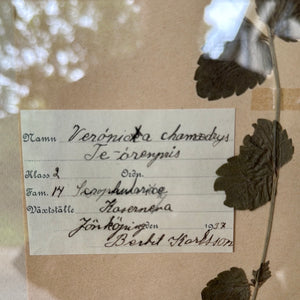 Namn Verónicka chamædrys
Te-årenpris
Klass 2 Ordn.
Fam. 14 Scrophulariceæ
Växtställe Kasernerna
Jönköping den 1937
Bertil Karlsson